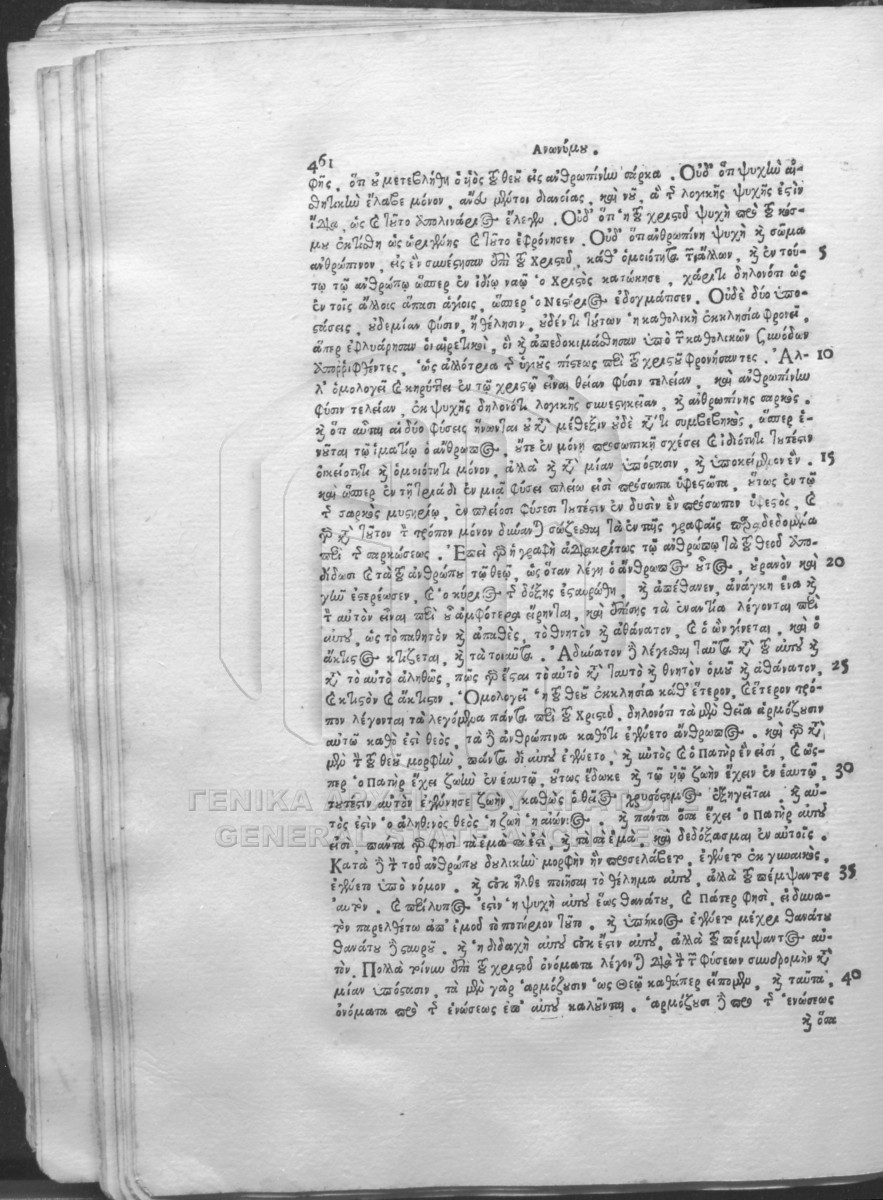 461
Ανωνύμου.
φῆς, ὅτι οὐ μετεβλήθη ὁ υἱὸς τοῦ θεοῦ εἰς ἀνθρωπίνην σάρκα. Οὐδ' ὅτι ψυχὴν αἰ-
σθητικὴν ἔλαβε μόνον, ἄνευ μέντοι διανοίας, καὶ νοῦ, ἃ τῆς λογικῆς ψυχῆς ἐστὶν
ἴδια, ὡς καὶ τοῦτο Ἀπολινάριος ἔλεγεν. Οὐδ' ὅτι ἡ τοῦ χριστοῦ ψυχὴ πρὸ τοῦ κόσ-
μου ἐκτίσθη ὡς ὠριγένης καὶ τοῦτο ἐφρόνησεν. Οὐδ' ὅτι ἀνθρωπίνη ψυχὴ καὶ σῶμα
ἀνθρώπινον, εἰς ἓν συνέστησαν ἐπὶ τοῦ Χριστοῦ, καθ' ὁμοιότητα τῶν ἄλλων, καὶ ἐν τού- 5
τῳ τῷ ἀνθρώπῳ ὥσπερ ἐν ἰδίῳ ναῷ ὁ Χριστὸς κατώκησε, χάριτι δηλονότι ὡς
ἐν τοῖς ἄλλοις ἅπασι ἁγίοις, ὥσπερ ὁ Νεστόριος ἐδογμάτισεν. Οὐδὲ δύο ὑπο-
στάσεις, οὐδεμίαν φύσιν, ἢ θέλησιν, οὐδέν τι τούτων ἡ καθολικὴ ἐκκλησία φρονεῖ,
ἅπερ ἐφλυάρησαν οἱ αἱρετικοὶ, οἳ καὶ ἀπεδοκιμάσθησαν ὑπὸ τῶν καθολικῶν συνόδων
ἀπορριφθέντες, ὡς ἀλλότρια τῆς ὑγιοῦς πίστεως περὶ τοῦ χριστοῦ φρονήσαντες. Ἀλ- 10
λ' ὁμολογεῖ καὶ κηρύττει ἐν τῷ χριστῷ εἶναι θείαν φύσιν τελείαν, καὶ ἀνθρωπίνην
φύσιν τελείαν, ἐκ ψυχῆς δηλονότι λογικῆς συνεστηκεῖαν, καὶ ἀνθρωπίνης σαρκὸς.
καὶ ὅτι αὗται αἱ δύο φύσεις ἥνωνται οὐ κατὰ μέθεξιν οὐδὲ κατά τι συμβεβηκὸς, ὥσπερ ἑ-
νοῦται τῷ ἱματίῳ ὁ ἄνθρωπος, οὔτε ἐν μόνῃ προσωπικῇ σχέσει καὶ ἰδιότητι τουτέστιν
οἰκειότητι καὶ ὁμοιότητι μόνον, ἀλλὰ καὶ κατὰ μίαν ὑπόστασιν, καὶ ὑποκείμενον ἓν. 15
καὶ ὥσπερ ἐν τῇ τριάδι ἐν μιᾷ φύσει πλείω εἰσὶ πρόσωπα ὑφεστῶτα, οὕτως ἐν τῷ
τῆς σαρκὸς μυστηρίῳ, ἐν πλείοσι φύσεσι τουτέστιν ἐν δυσὶν ἓν πρόσωπον ὑφεστὸς, καὶ
γὰρ κατὰ τοῦτον τὸν τρόπον μόνον δύναται σώζεσθαι τὰ ἐν ταῖς γραφαῖς παραδεδομένα
περὶ τῆς σαρκώσεως. Ἐπεὶ γὰρ ἡ γραφὴ ἀδιακρίτως τῷ ἀνθρώπῳ τὰ τοῦ θεοῦ ἀπο-
δίδωσι καὶ τὰ τοῦ ἀνθρώπου τῷ θεῷ, ὡς ὅταν λέγῃ ὁ ἄνθρωπος οὗτος, οὐρανὸν καὶ 20
γῆν ἐστερέωσεν, καὶ ὁ κύριος τῆς δόξης ἐσταυρώθη, καὶ ἀπέθανεν, ἀνάγκη ἕνα καὶ
τὸν αὐτὸν εἶναι περὶ οὗ ἀμφότερα εἴρηνται, καὶ ἐπίσης τὰ ἐναντία λέγονται περὶ
αὐτοῦ, ὡς τὸ παθητὸν καὶ ἀπαθὲς, τὸ θνητὸν καὶ ἀθάνατον, καὶ ὁ ὢν γίνεται, καὶ ὁ
ἄκτιστος κτίζεται, καὶ τὰ τοιαῦτα. Ἀδύνατον δὲ λέγεσθαι ταῦτα κατὰ τοῦ αὐτοῦ καὶ
κατὰ τὸ αὐτὸ ἀληθῶς, πῶς γὰρ ἔσται τὸ αὐτὸ κατὰ ταυτὸ καὶ θνητὸν ὁμοῦ καὶ ἀθάνατον, 25
καὶ κτιστὸν καὶ ἄκτιστον. Ὁμολογεῖ ἡ τοῦ θεοῦ ἐκκλησία καθ' ἕτερον, καὶ ἕτερον τρό-
πον λέγονται τὰ λεγόμενα πάντα περὶ τοῦ Χριστοῦ, δηλονότι τὰ μὲν θεῖα ἁρμόζουσιν
αὐτῷ καθὸ ἐστὶ θεὸς, τὰ δὲ ἀνθρώπινα καθότι ἐγένετο ἄνθρωπος. καὶ γὰρ κατὰ
μὲν τὴν τοῦ θεοῦ μορφὴν, πάντα δι' αὐτοῦ ἐγένετο, καὶ αὐτὸς καὶ ὁ Πατὴρ ἕν εἰσί, καὶ ὥσ-
περ ὁ Πατὴρ ἔχει ζωὴν ἐν ἑαυτῷ, οὕτως ἔδωκε καὶ τῷ υἱῷ ζωὴν ἔχειν ἐν ἑαυτῷ, 30
τουτέστιν αὐτὸν ἐγέννησε ζωὴν, καθὼς ὁ θεῖος χρυσόστομος ἐξηγεῖται, καὶ αὐ-
τὸς ἐστὶν ὁ ἀληθινὸς θεὸς ἡ ζωὴ ἡ αἰώνιος, καὶ πάντα ὅσα ἔχει ὁ Πατὴρ αὐτοῦ
εἰσὶ, πάντα γὰρ φησὶ τὰ ἐμὰ σά ἐστὶ, καὶ τὰ σὰ ἐμὰ, καὶ δεδόξασμαι ἐν αὐτοῖς.
Κατὰ δὲ τὴν τοῦ ἀνθρώπου δουλικὴν μορφὴν ἣν προσελάβετο, ἐγένετο ἐκ γυναικὸς,
ἐγένετο ὑπὸ νόμον, καὶ οὐκ ἦλθε ποιῆσαι τὸ θέλημα αὐτοῦ, ἀλλὰ τοῦ πέμψαντος 35
αὐτὸν, καὶ περίλυπος ἐστὶν ἡ ψυχὴ αὐτοῦ ἕως θανάτου, καὶ Πάτερ φησὶ, εἰ δυνα-
τὸν παρελθέτω ἀπ' ἐμοῦ τὸ ποτήριον τοῦτο, καὶ ὑπήκοος ἐγένετο μέχρι θανάτου
θανάτου δὲ σταυροῦ, καὶ ἡ διδαχὴ αὐτοῦ οὐκ ἔστιν αὐτοῦ, ἀλλὰ τοῦ πέμψαντος αὐ-
τὸν. Πολλὰ τοίνυν ἐπὶ τοῦ χριστοῦ ὀνόματα λέγονται διὰ τὴν τῶν φύσεων συνδρομὴν κατὰ
μίαν ὑπόστασιν, τὰ μὲν γὰρ ἁρμόζουσιν ὡς Θεῷ καθάπερ εἴπομεν, καὶ ταῦτα 40
ὀνόματα πρὸ τῆς ἑνώσεως ἐπ' αὐτοῦ καλοῦνται, ἁρμόζουσι δὲ πρὸ τῆς ἑνώσεως
καὶ ὅσα
ΓΕΝΙΚΑ ΑΡΧΕΙΑ ΤΟΥ ΚΡΑΤΟΥΣ
GENERAL STATE ARCHIVES